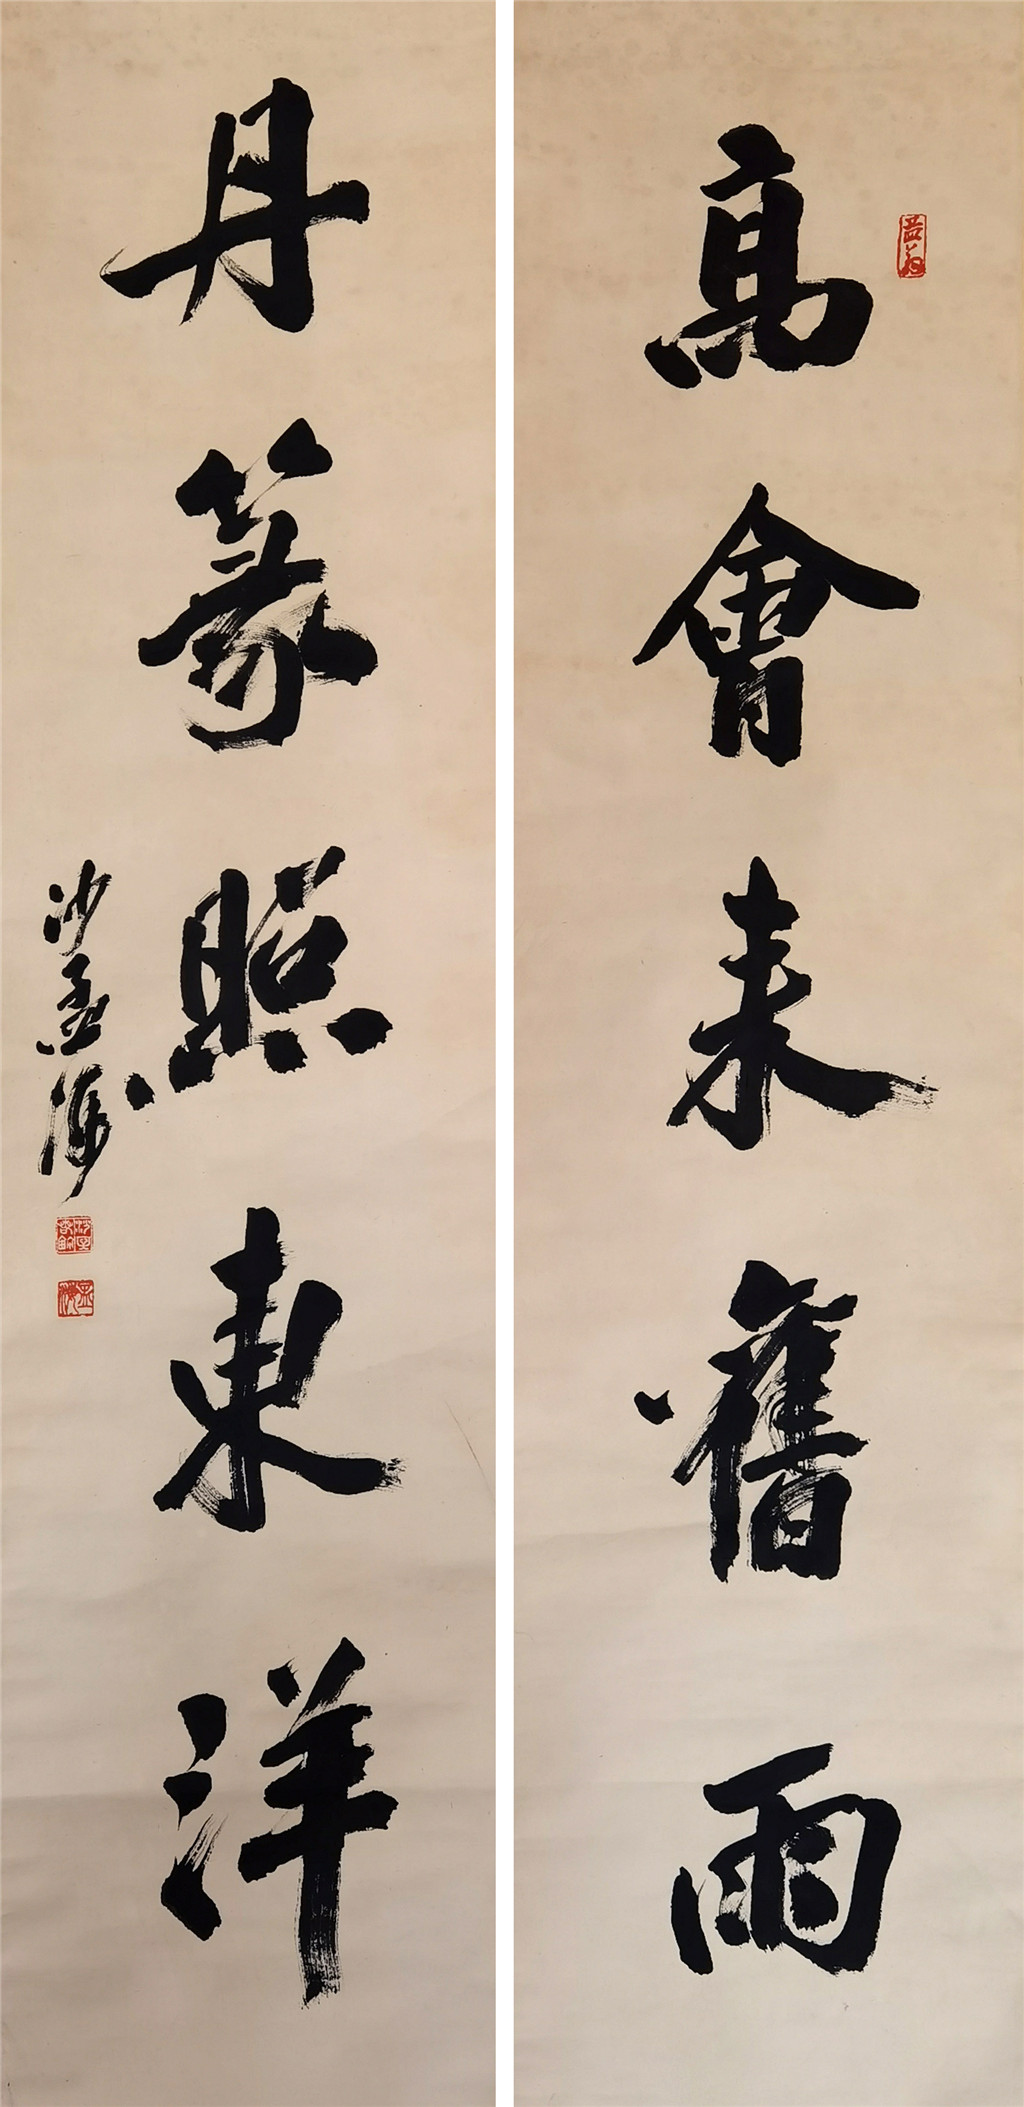 高會来舊雨
丹篆照東洋
沙孟海